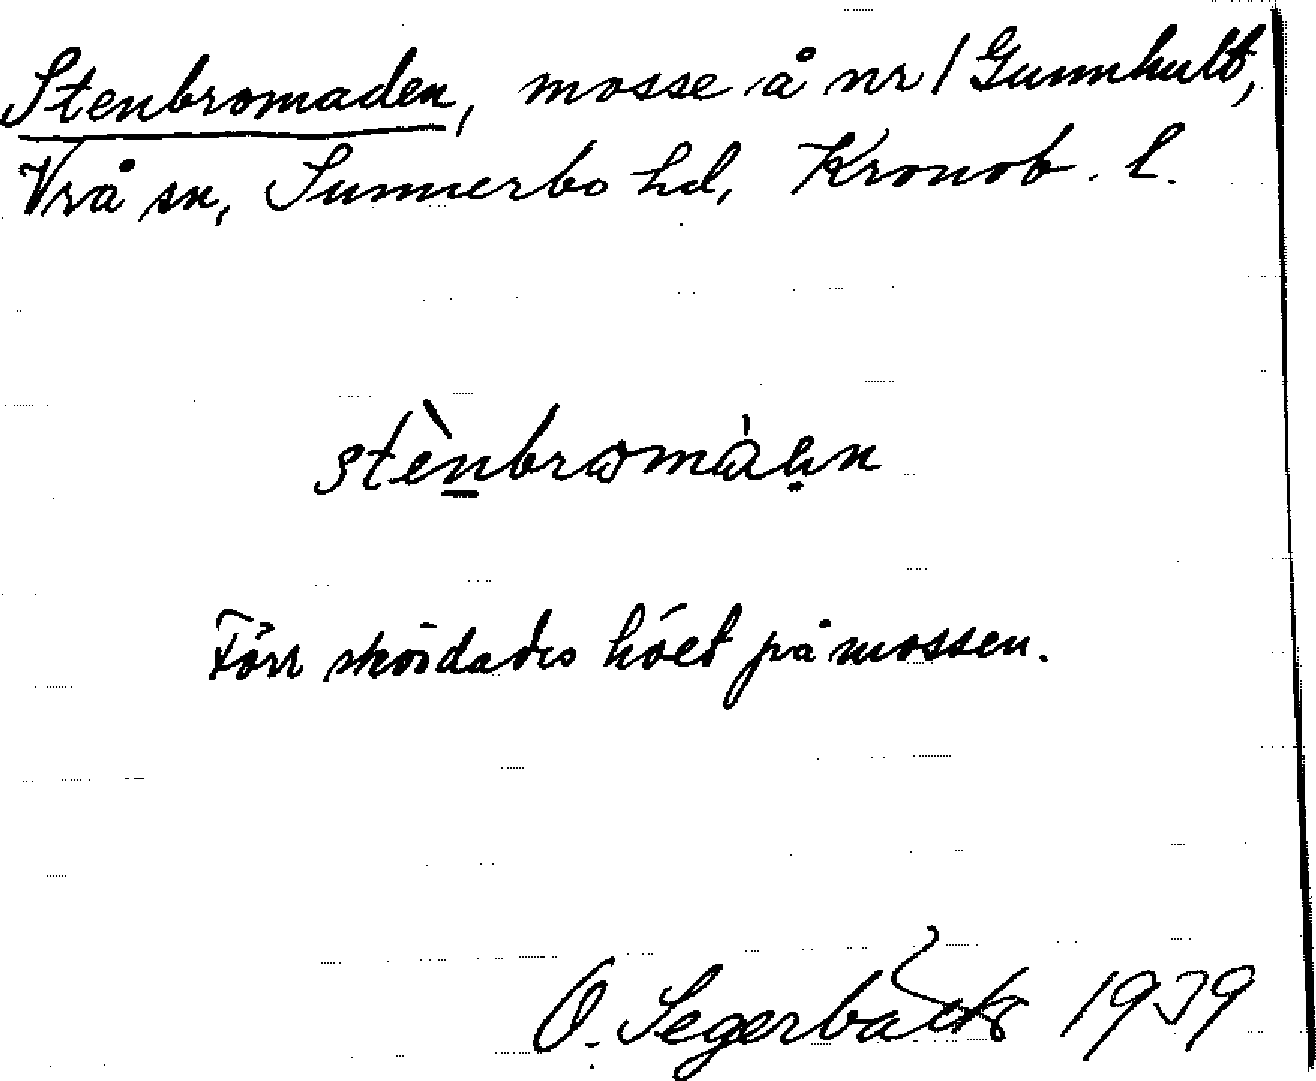 Stenbromaden, mosse å nr 1 Gunnhult,
Vrå sn, Sunnerbo hd, Kronob. l.
stènbromàan
Förr skördades höet på mossen.
O. Segerbäck 1939